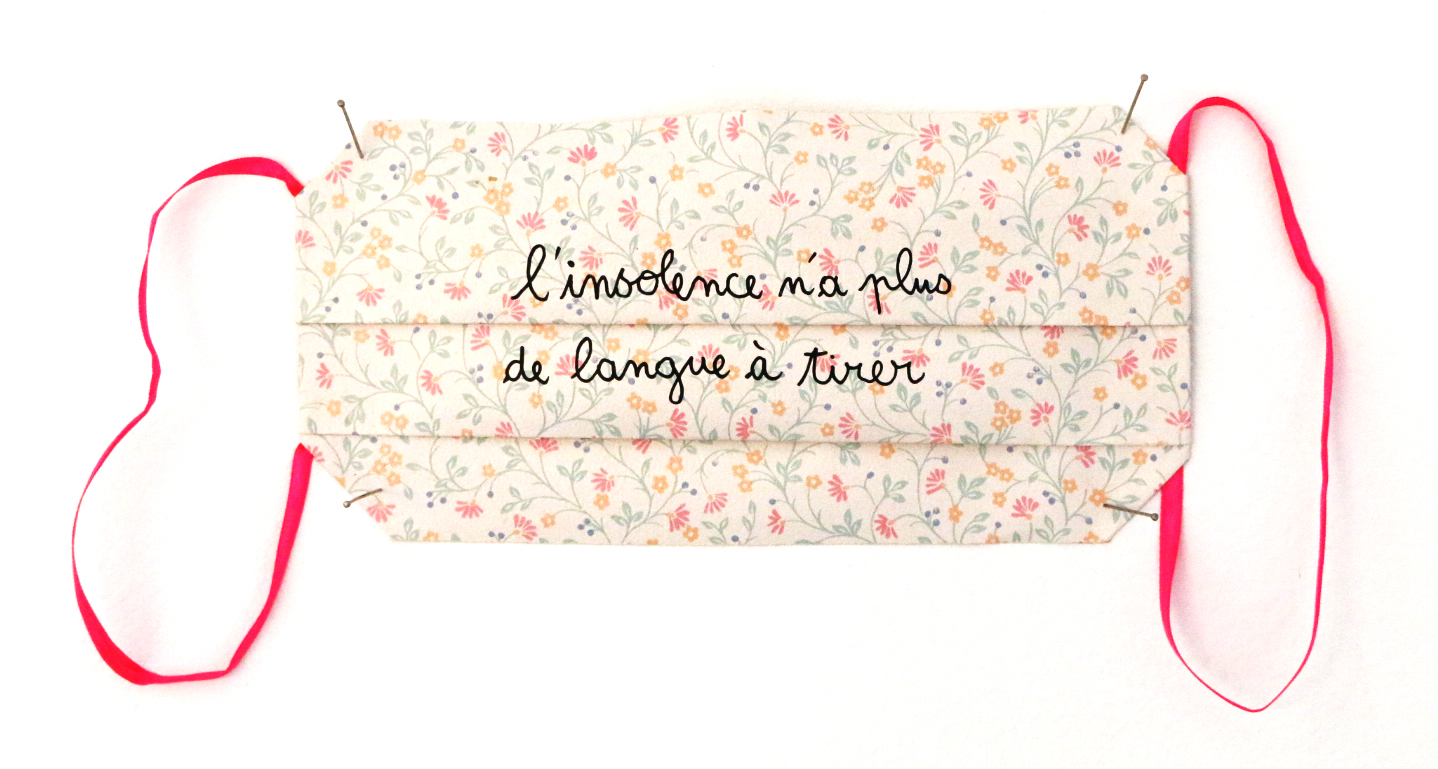 l'insolence n'a plus
de langue à tirer